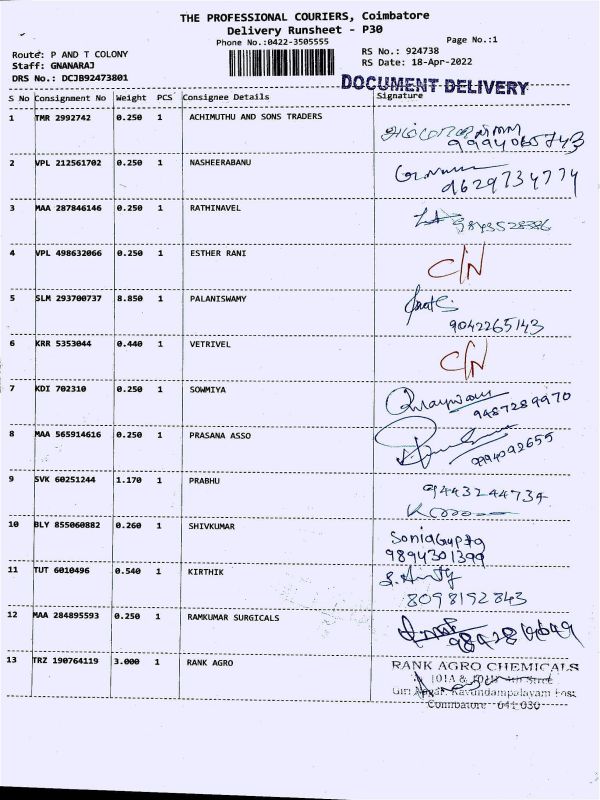 THE PROFESSIONAL COURIERS, Coimbatore
Delivery Runsheet - P30
Phone No.:0422-3505555
Page No.:1
Route: P AND T COLONY
RS No.: 924738
Staff: GNANARAJ
RS Date: 18-Apr-2022
DRS No.: DCJB92473801
DOCUMENT DELIVERY
S No Consignment No Weight PCS Consignee Details Signature
1 TMR 2992742 0.250 1 ACHIMUTHU AND SONS TRADERS
9994065743
2 VPL 212561702 0.250 1 NASHEERABANU
9629734774
3 MAA 287846146 0.250 1 RATHINAVEL
9843528386
4 VPL 498632066 0.250 1 ESTHER RANI C/N
5 SLM 293700737 8.850 1 PALANISWAMY
9042265143
6 KRR 5353044 0.440 1 VETRIVEL C/N
7 KDI 702310 0.250 1 SOWMIYA
9487289970
8 MAA 565914616 0.250 1 PRASANA ASSO
9994092655
9 SVK 60251244 1.170 1 PRABHU
9443244734
10 BLY 855060882 0.260 1 SHIVKUMAR
Sonia Gupta
9894301399
11 TUT 6010496 0.540 1 KIRTHIK
8098192843
12 MAA 284895593 0.250 1 RAMKUMAR SURGICALS
13 TRZ 190764119 3.000 1 RANK AGRO
RANK AGRO CHEMICALS
101A & 4th Street
Giri Nagar, Kavundampalayam Post
Coimbatore - 641 030